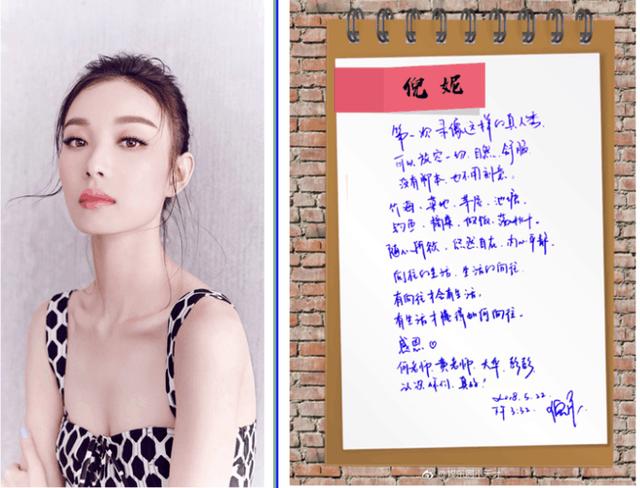 倪妮
第一次录像这样的真人秀
可以放空一切、自然、舒服
没有脚本、也不用刻意。
竹海、菜地、茅屋、池塘
随心所欲、悠然自在、内心平静
向往的生活、生活的向往
有向往才会有生活。
有生活才懂得如何向往。
感恩♡
何老师、黄老师、大华、彭彭
认识你们、真好！
2018.5.22
下午3:32